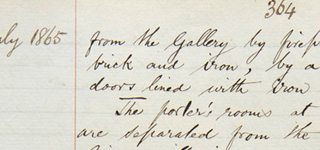 364
July 1865
from the Gallery by firep
brick and iron, by a
doors lined with iron
The porter's rooms at
are separated from the